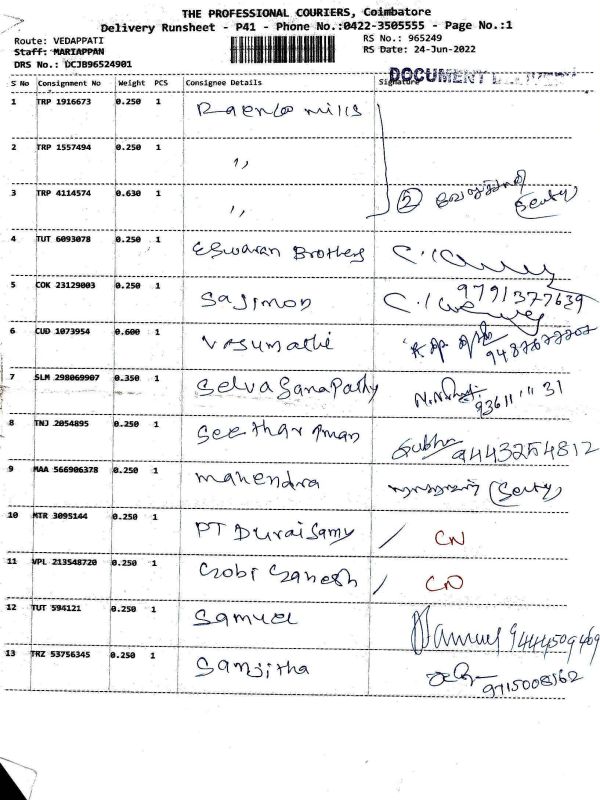 THE PROFESSIONAL COURIERS, Coimbatore
Delivery Runsheet - P41 - Phone No.:0422-3505555 - Page No.:1
Route: VEDAPPATI RS No.: 965249
Staff: MARIAPPAN RS Date: 24-Jun-2022
DRS No.: DCJB96524901
DOCUMENT
S No Consignment No Weight PCS Consignee Details Signature
1 TRP 1916673 0.250 1 mills
2 TRP 1557494 0.250 1 ,,
3 TRP 4114574 0.630 1 ,, 2
4 TUT 6093078 0.250 1 Eswaran Brothers
5 COK 23129003 0.250 1 Sajimon 9791377639
6 CUD 1073954 0.600 1 Vasumathi
7 SLM 298069907 0.350 1 Selva Ganapathy
8 TNJ 2054895 0.250 1 Seetharaman Subha 9443254812
9 MAA 566906378 0.250 1 mahendra
10 MTR 3095144 0.250 1 PT Duraisamy / CN
11 VPL 213548720 0.250 1 Gobi Ganesh / CN
12 TUT 594121 0.250 1 Samuel 9444509469
13 TRZ 53756345 0.250 1 Sanjitha